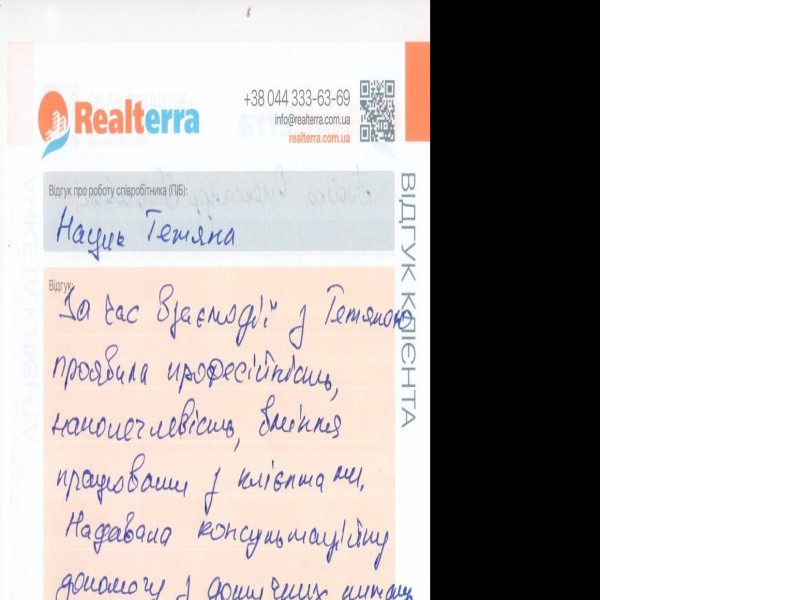 Realterra
+38 044 333-63-69
info@realterra.com.ua
realterra.com.ua
ВІДГУК КЛІЄНТА
Відгук про роботу співробітника (ПІБ):
Тетяна
Відгук:
За час взаємодії з Тетяною
проявила професійність,
наполегливість, вміння
працювати з клієнтами.
Надавала консультаційну
допомогу з дотичних питань